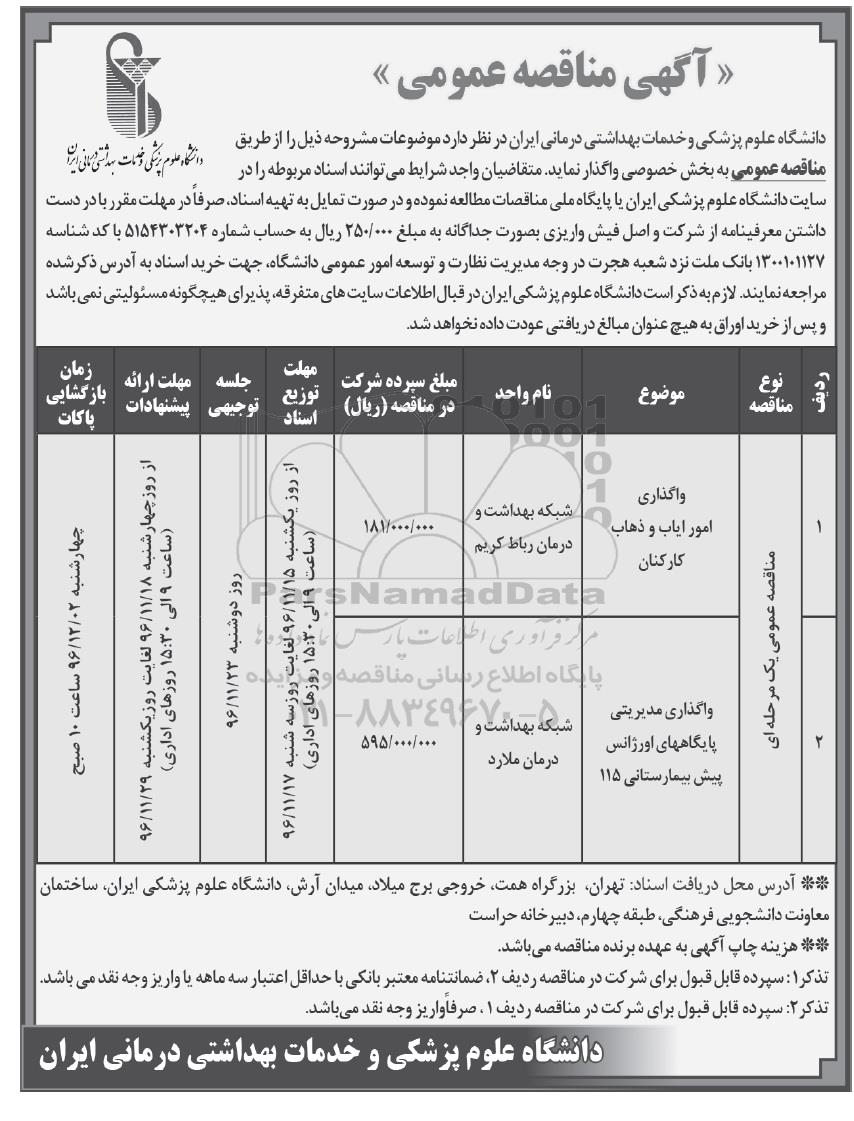 « آگهی مناقصه عمومی »
دانشگاه علوم پزشکی خدمات بهداشتی درمانی ایران
دانشگاه علوم پزشکی و خدمات بهداشتی درمانی ایران در نظر دارد موضوعات مشروحه ذیل را از طریق
مناقصه عمومی به بخش خصوصی واگذار نماید. متقاضیان واجد شرایط می‌توانند اسناد مربوطه را در
سایت دانشگاه علوم پزشکی ایران یا پایگاه ملی مناقصات مطالعه نموده و در صورت تمایل به تهیه اسناد، صرفاً در مهلت مقرر با در دست
داشتن معرفینامه از شرکت و اصل فیش واریزی بصورت جداگانه به مبلغ ۲۵۰/۰۰۰ ریال به حساب شماره ۵۱۵۴۳۰۳۲۰۴ با کد شناسه
۱۳۰۰۱۰۱۱۲۷ بانک ملت نزد شعبه هجرت در وجه مدیریت نظارت و توسعه امور عمومی دانشگاه، جهت خرید اسناد به آدرس ذکرشده
مراجعه نمایند. لازم به ذکر است دانشگاه علوم پزشکی ایران در قبال اطلاعات سایت های متفرقه، پذیرای هیچگونه مسئولیتی نمی باشد
و پس از خرید اوراق به هیچ عنوان مبالغ دریافتی عودت داده نخواهد شد.
ردیف
نوع
مناقصه
موضوع
نام واحد
مبلغ سپرده شرکت
در مناقصه (ریال)
مهلت
توزیع
اسناد
جلسه
توجیهی
مهلت ارائه
پیشنهادات
زمان
بازگشایی
پاکات
۱
مناقصه عمومی یک مرحله ای
واگذاری
امور ایاب و ذهاب
کارکنان
شبکه بهداشت و
درمان رباط کریم
۱۸۱/۰۰۰/۰۰۰
از روز یکشنبه ۹۶/۱۱/۱۵ لغایت روز سه شنبه ۹۶/۱۱/۱۷
(ساعت ۹ الی ۱۵:۳۰ روزهای اداری)
روز دوشنبه ۹۶/۱۱/۲۳
از روز چهارشنبه ۹۶/۱۱/۱۸ لغایت روز یکشنبه ۹۶/۱۱/۲۹
(ساعت ۹ الی ۱۵:۳۰ روزهای اداری)
چهارشنبه ۹۶/۱۲/۰۲ ساعت ۱۰ صبح
۲
واگذاری مدیریتی
پایگاههای اورژانس
پیش بیمارستانی ۱۱۵
شبکه بهداشت و
درمان ملارد
۵۹۵/۰۰۰/۰۰۰
ParsNamadData
مرکز فرآوری اطلاعات پارس نماد داده ها
پایگاه اطلاع رسانی مناقصه و مزایده
۰۲۱-۸۸۳۴۹۶۷۰-۵
❊❊ آدرس محل دریافت اسناد: تهران، بزرگراه همت، خروجی برج میلاد، میدان آرش، دانشگاه علوم پزشکی ایران، ساختمان
معاونت دانشجویی فرهنگی، طبقه چهارم، دبیرخانه حراست
❊❊ هزینه چاپ آگهی به عهده برنده مناقصه می‌باشد.
تذکر۱: سپرده قابل قبول برای شرکت در مناقصه ردیف ۲، ضمانتنامه معتبر بانکی با حداقل اعتبار سه ماهه یا واریز وجه نقد می باشد.
تذکر۲: سپرده قابل قبول برای شرکت در مناقصه ردیف ۱ ، صرفاً واریز وجه نقد می‌باشد.
دانشگاه علوم پزشکی و خدمات بهداشتی درمانی ایران